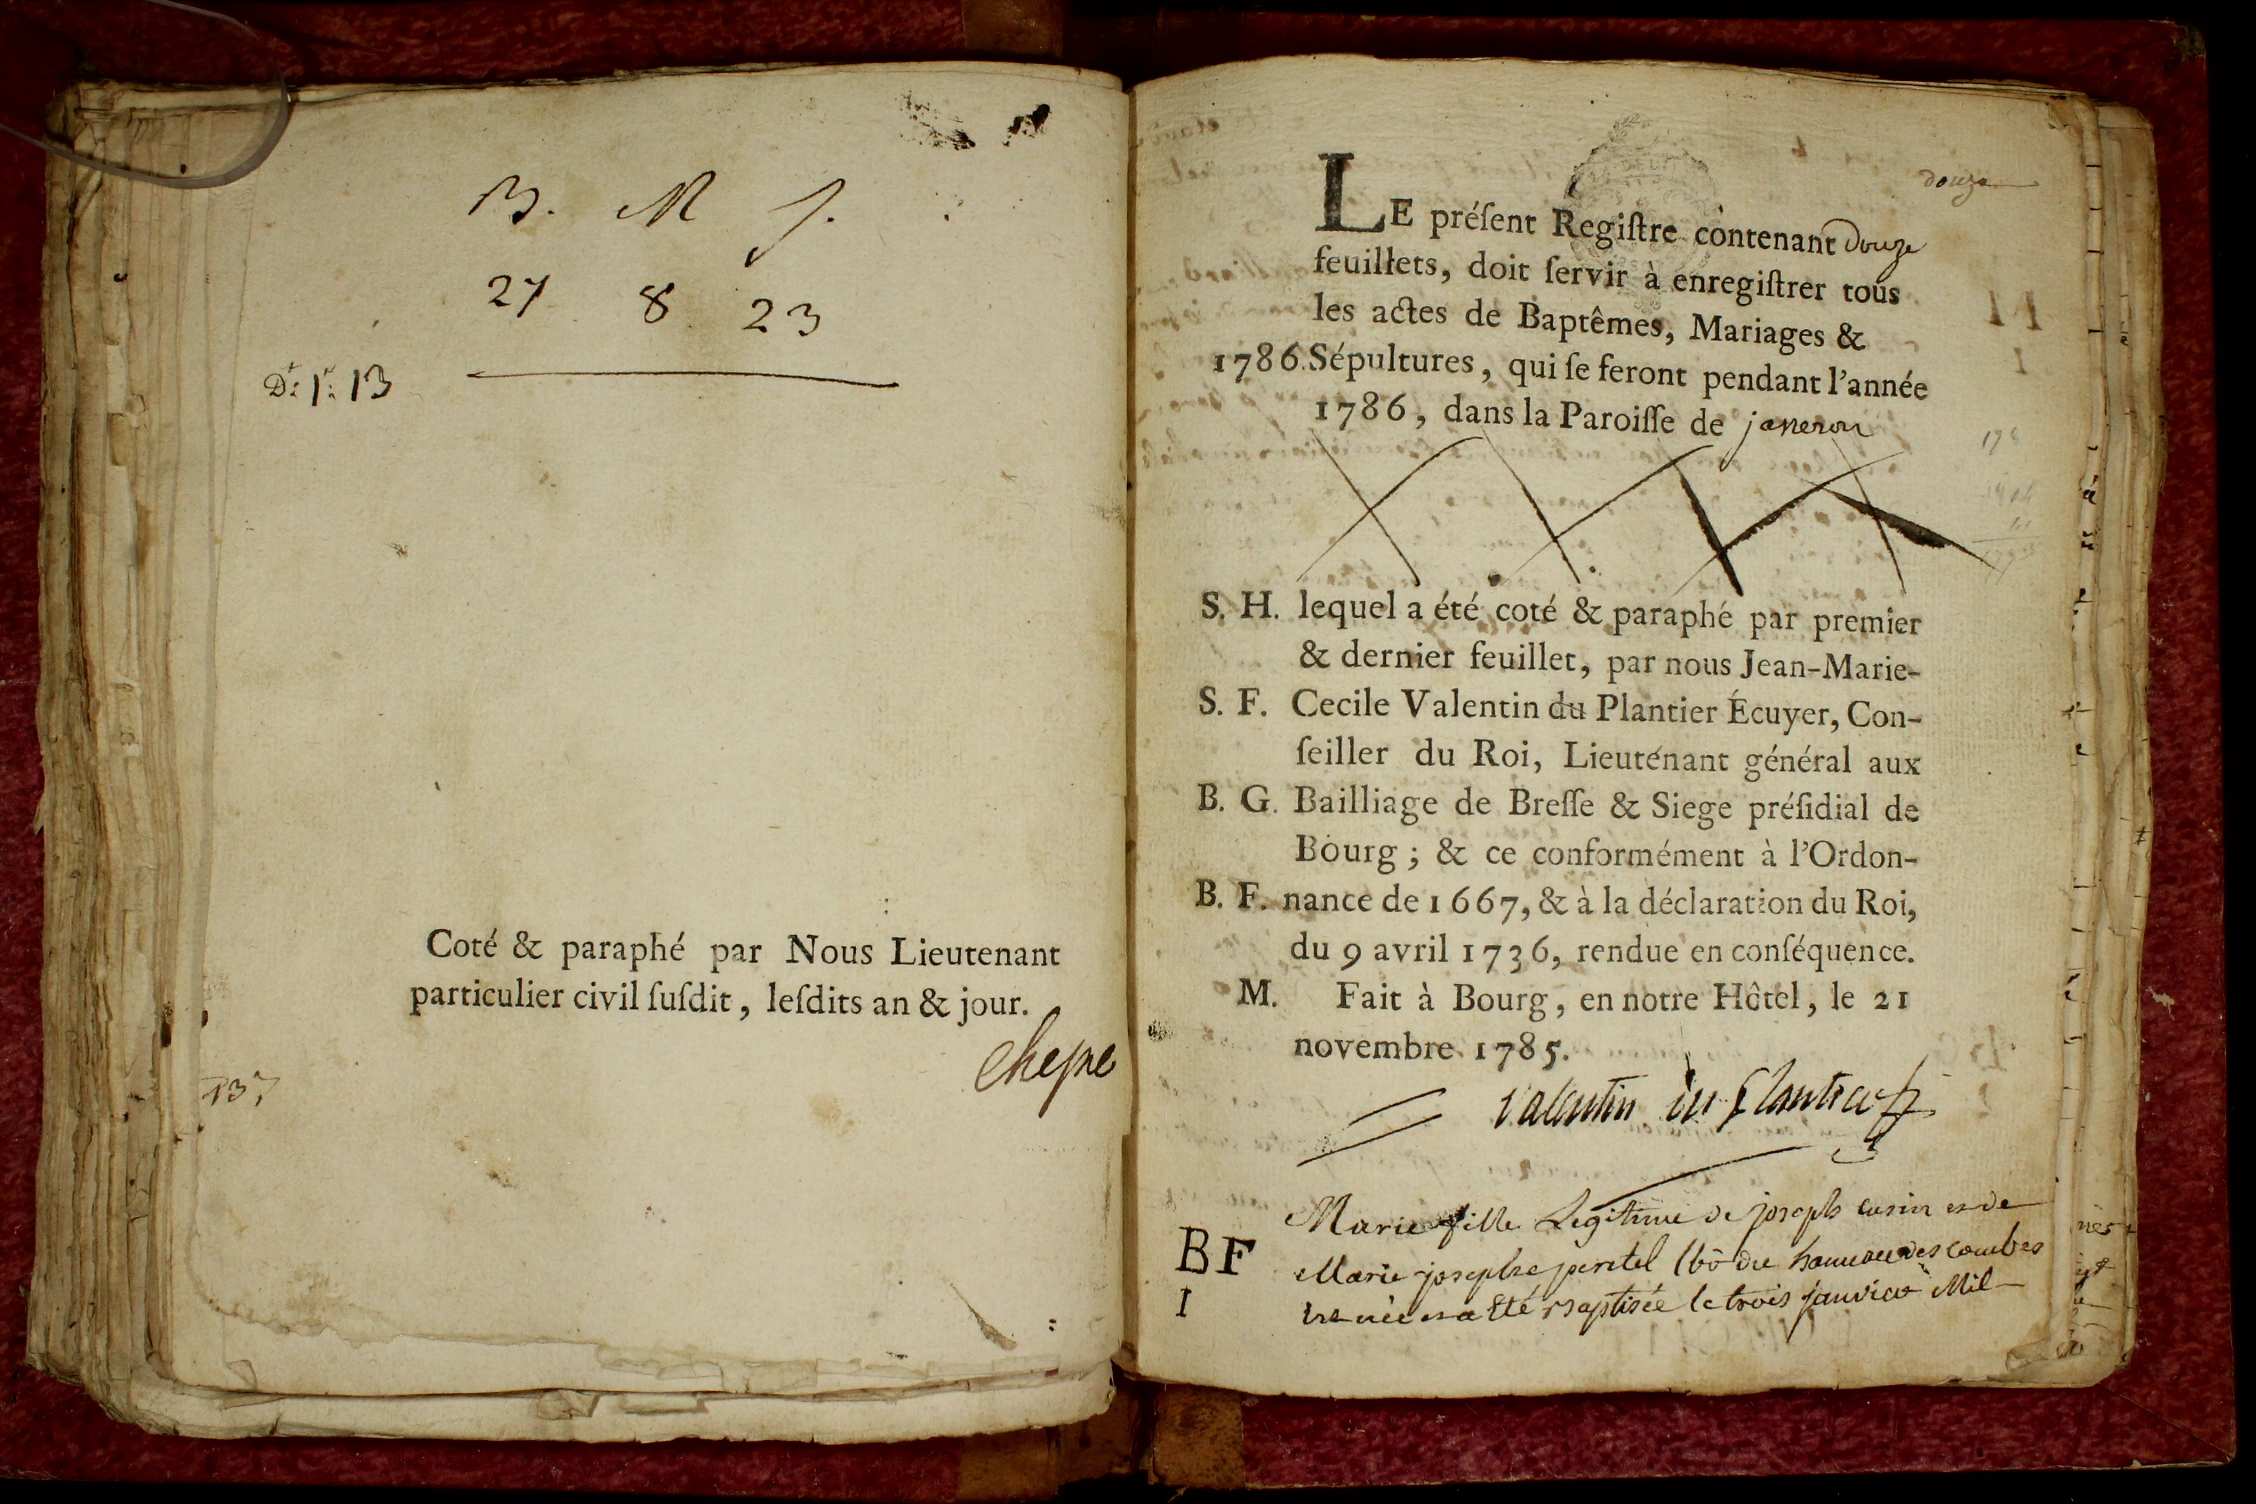 B. M S.
27 8 23
Dr. 1r. 13
Coté & paraphé par Nous Lieutenant
particulier civil ſuſdit, leſdits an & jour.
Chepe
137
douze
LE préſent Regiſtre contenant Douze
feuillets, doit ſervir à enregiſtrer tous
les actes de Baptêmes, Mariages &
1786. Sépultures, qui ſe feront pendant l'année
1786, dans la Paroiſſe de janeron
S. H. lequel a été coté & paraphé par premier
& dernier feuillet, par nous Jean-Marie-
S. F. Cecile Valentin du Plantier Écuyer, Con-
ſeiller du Roi, Lieutenant général aux
B. G. Bailliage de Breſſe & Siege préſidial de
Bourg ; & ce conformément à l'Ordon-
B. F. nance de 1667, & à la déclaration du Roi,
du 9 avril 1736, rendue en conſéquence.
M. Fait à Bourg, en notre Hôtel, le 21
novembre 1785.
Valentin du Plantier
Marie fille Legitime de joseph cusin et de
BF Marie josephe peretel du hameau des combes
I est née et a Eté Baptisée le trois janvier Mil